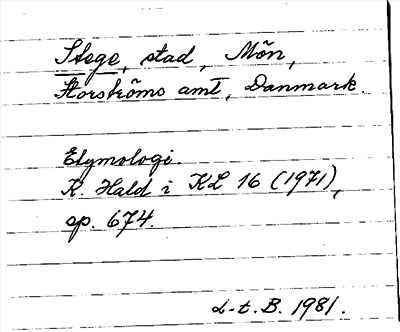 Stege, stad, Mön,
Storströms amt, Danmark.
Etymologi.
K. Hald i KL 16 (1971),
sp. 674.
L-t. B. 1981.